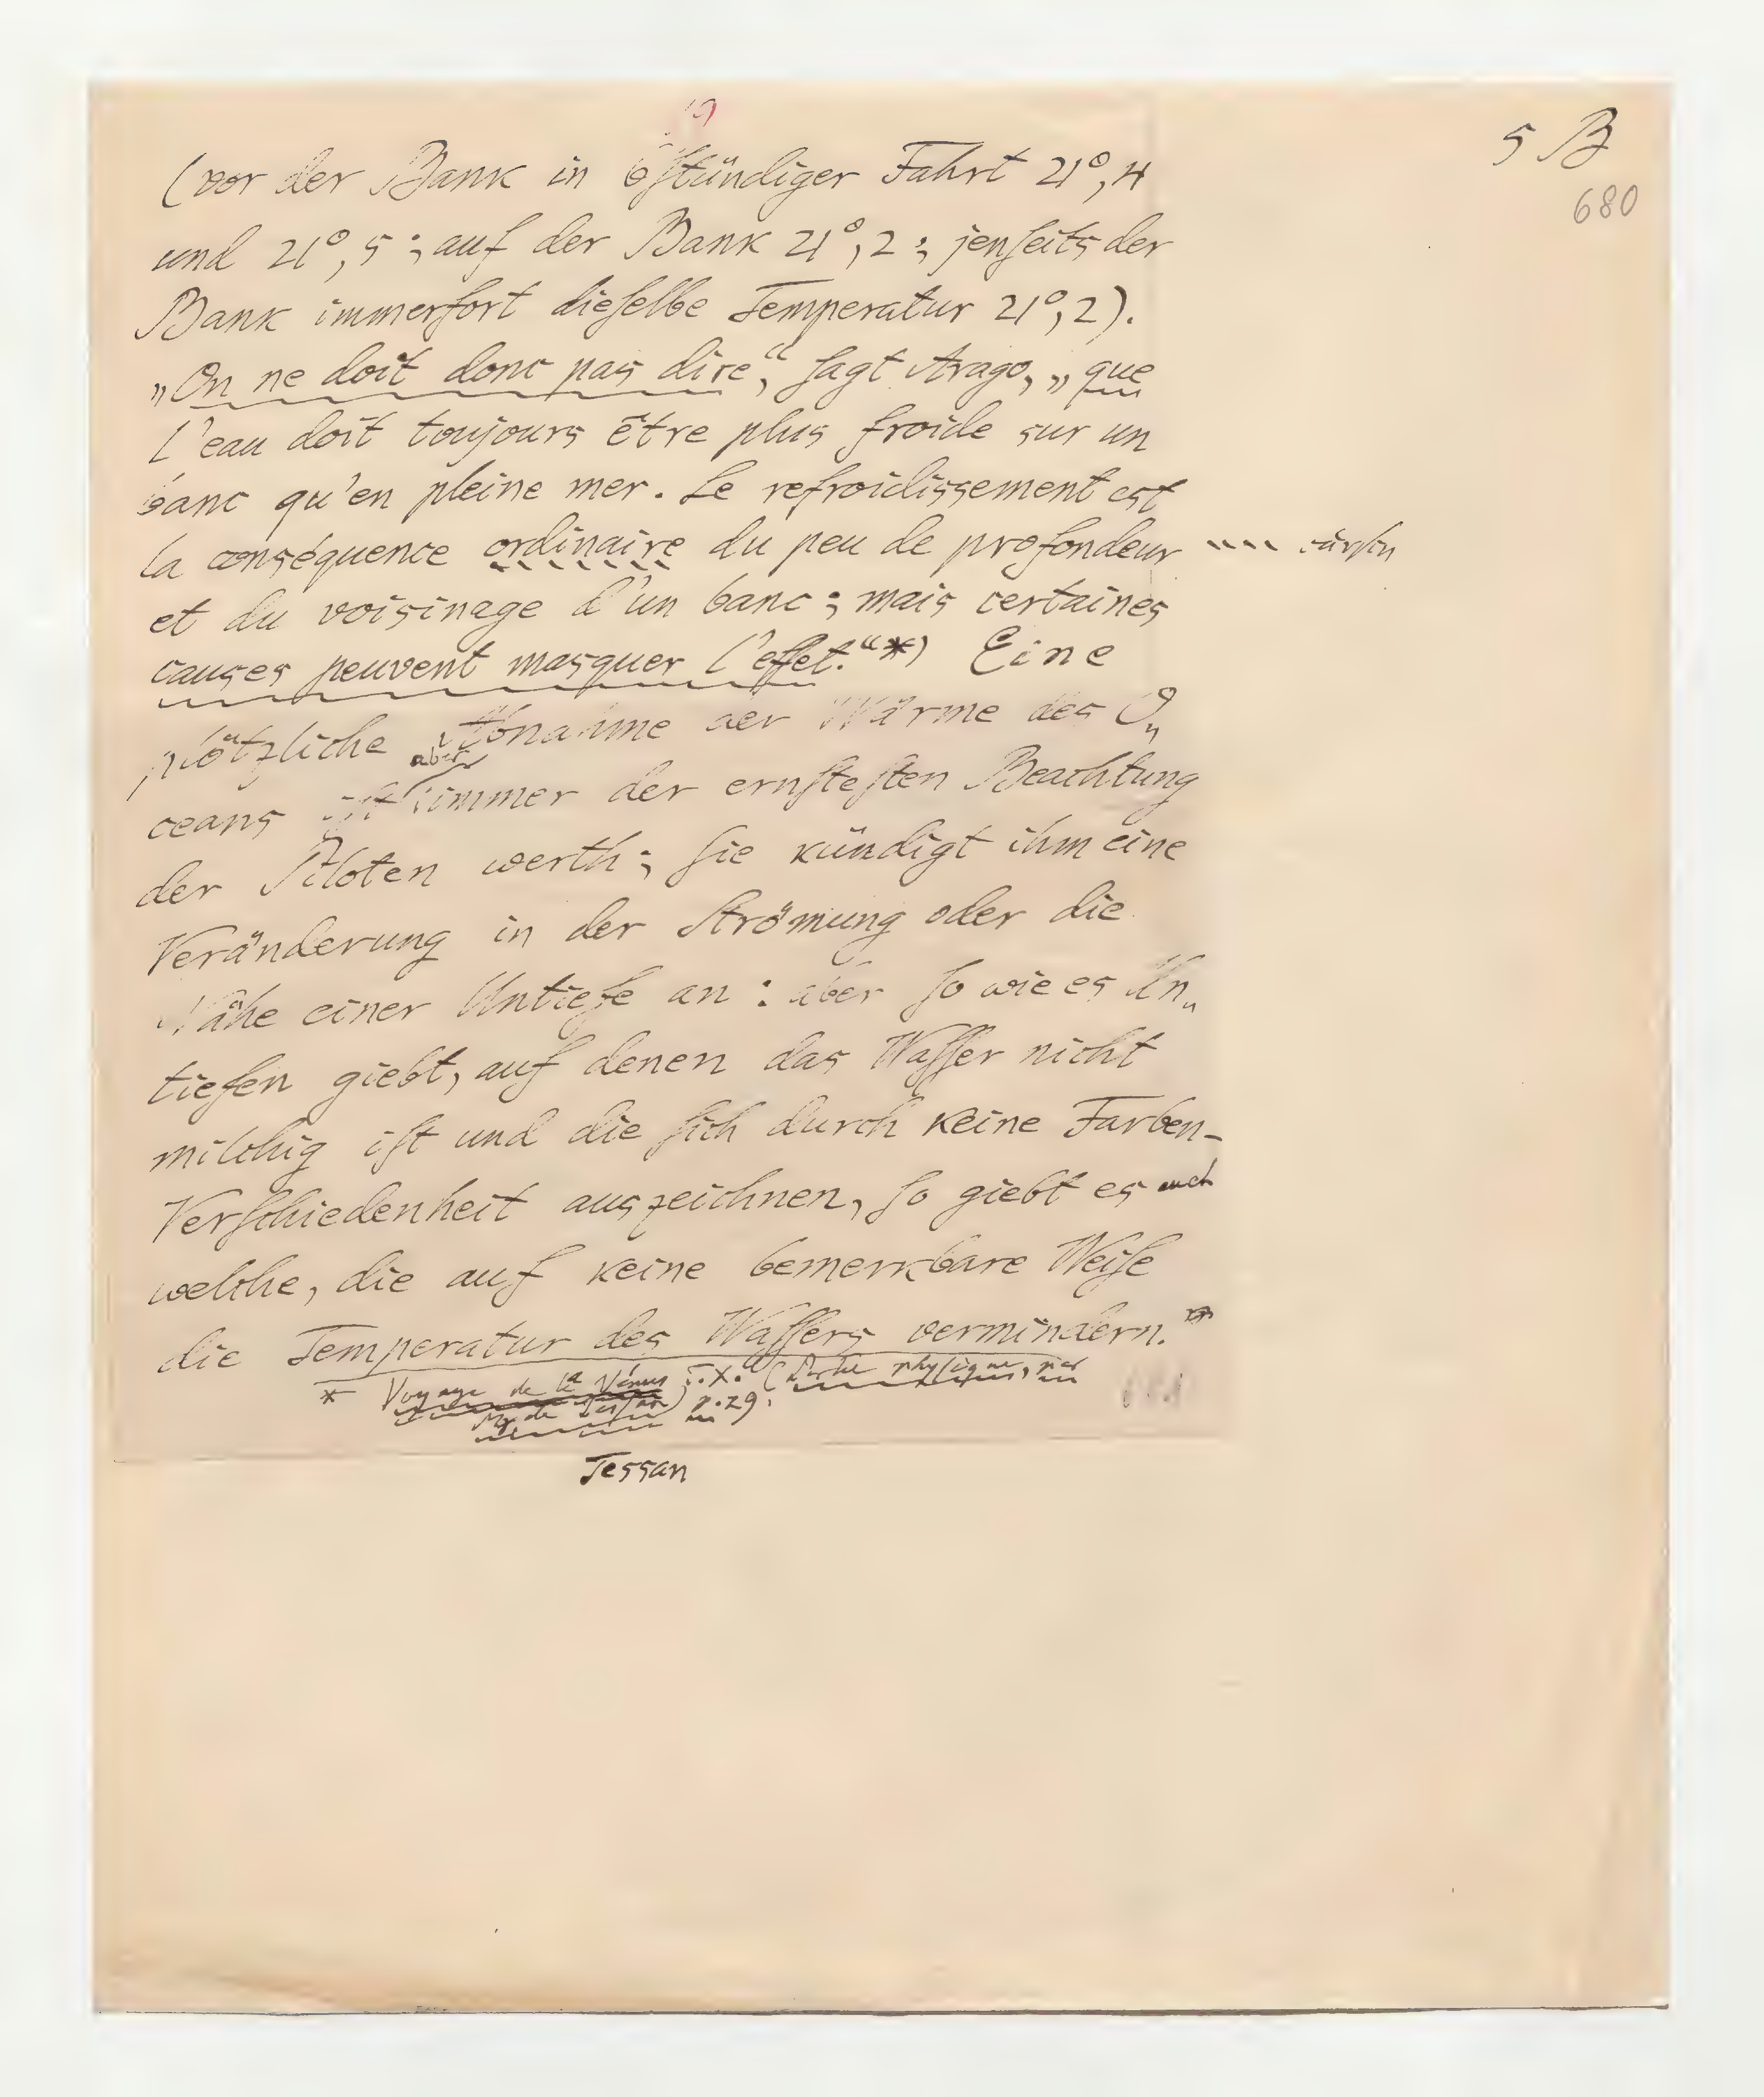 19
5 B
680
(vor der Bank in 6ſtündiger Fahrt 21°,4
und 21°,5; auf der Bank 21°,2; jenſeits der
Bank immerfort dieſelbe Temperatur 21°,2).
„On ne doit donc pas dire“, ſagt Arago, „que
l'eau doit toujours être plus froide sur un
banc qu'en pleine mer. Le refroidissement est
la conséquence ordinaire du peu de profondeur
et du voisinage d'un banc; mais certaines
causes peuvent masquer l'effet.“*) Eine
plötzliche Abnahme der Wärme des O„
aber
ceans iſt immer der ernſteſten Beachtung
der Piloten werth; ſie kündigt ihm eine
Veränderung in der Strömung oder die
Nähe einer Untiefe an: aber ſo wie es Un„
tiefen giebt, auf denen das Waſſer nicht
milchig iſt und die ſich durch keine Farben-
Verſchiedenheit auszeichnen, ſo giebt es auch
welche, die auf keine bemerkbare Weiſe
die Temperatur des Waſſers vermindern.
* Voyage de la Vénus T.X. (Partie phyſique, par
Mr de Teſſan) p.29.
Tessan